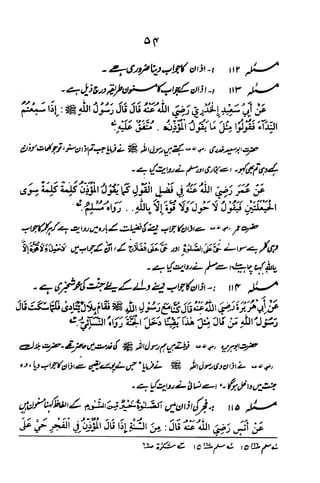 ۵۴
مسئلہ ۱۱۲ :- اذان کا جواب دینا ضروری ہے۔
مسئلہ ۱۱۳ :- اذان کے جواب کا مسنون طریقہ درج ذیل ہے۔
عَنْ أَبِي سَعِيدٍ الْخُدْرِيِّ رَضِيَ اللهُ عَنْهُ قَالَ قَالَ رَسُولُ اللهِ ﷺ : إِذَا سَمِعْتُمُ
النِّدَاءَ فَقُولُوا مِثْلَ مَا يَقُولُ الْمُؤَذِّنُ. مُتَّفَقٌ عَلَيْهِ
حضرت ابو سعید خدری کہتے ہیں رسول اللہ ﷺ نے فرمایا جب تم اذان سنو، تو جو کلمات مؤذن
کہے وہی تم بھی کہو۔ اسے بخاری اور مسلم نے روایت کیا ہے۔
عَنْ عُمَرَ رَضِيَ اللهُ عَنْهُ فِي فَضْلِ الْقَوْلِ كَمَا يَقُولُ الْمُؤَذِّنُ كَلِمَةً كَلِمَةً سِوَى
الْحَيْعَلَتَيْنِ فَيَقُولُ لَا حَوْلَ وَلَا قُوَّةَ إِلَّا بِاللهِ.. رَوَاهُ مُسْلِمٌ
حضرت عمر سے اذان کا جواب دینے کی فضیلت کے بارہ میں روایت ہے کہ ہر کلمہ کا جواب
وہی کلمہ ہے سوائے حَيَّ عَلَى الصَّلٰوةِ اور حَيَّ عَلَى الْفَلَاحِ کے، ان کے جواب میں لَاحَوْلَ وَلَا قُوَّةَ إِلَّا
بِاللهِ کہنا چاہئے۔ اسے مسلم نے روایت کیا ہے۔
مسئلہ ۱۱۴ :- اذان کا جواب دینے والے کے لئے جنت کی خوشخبری ہے۔
عَنْ أَبِي هُرَيْرَةَ رَضِيَ اللهُ عَنْهُ قَالَ كُنَّا مَعَ رَسُولِ اللهِ ﷺ فَقَامَ بِلَالٌ يُنَادِي فَلَمَّا سَكَتَ قَالَ
رَسُولُ اللهِ مَنْ قَالَ مِثْلَ هٰذَا يَقِيْنًا دَخَلَ الْجَنَّةَ رَوَاهُ النَّسَائِيُّ
حضرت ابو ہریرہ فرماتے ہیں ہم رسول اللہ ﷺ کی خدمت میں حاضر تھے۔ حضرت بلال
نے اذان دی رسول اللہ ﷺ نے فرمایا "جس نے پورے یقین سے اذان کا جواب دیا، وہ
جنت میں داخل ہوگا۔" اسے نسائی نے روایت کیا ہے۔
مسئلہ ۱۱۵ :- فجر کی اذان میں اَلصَّلٰوةُ خَيْرٌ مِّنَ النَّوْمِ کے الفاظ کہنا مسنون ہیں
عَنْ أَنَسٍ رَضِيَ اللهُ عَنْهُ قَالَ : مِنَ السُّنَّةِ إِذَا قَالَ الْمُؤَذِّنُ فِي الْفَجْرِ حَيَّ عَلَى